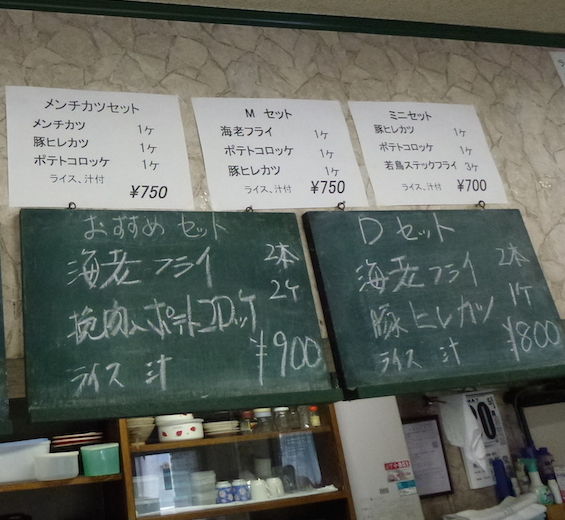 メンチカツセット
メンチカツ 1ケ
豚ヒレカツ 1ケ
ポテトコロッケ 1ケ
ライス、汁付 ¥750
M セット
海老フライ 1ケ
ポテトコロッケ 1ケ
豚ヒレカツ 1ケ
ライス、汁付 ¥750
ミニセット
豚ヒレカツ 1ケ
ポテトコロッケ 1ケ
若鳥ステックフライ 3ケ
ライス、汁付 ¥700
おすすめ セット
海老フライ 2本
挽肉入ポテトコロッケ 2ケ
ライス 汁 ¥900
D セット
海老フライ 2本
豚ヒレカツ 1ケ
ライス 汁 ¥800